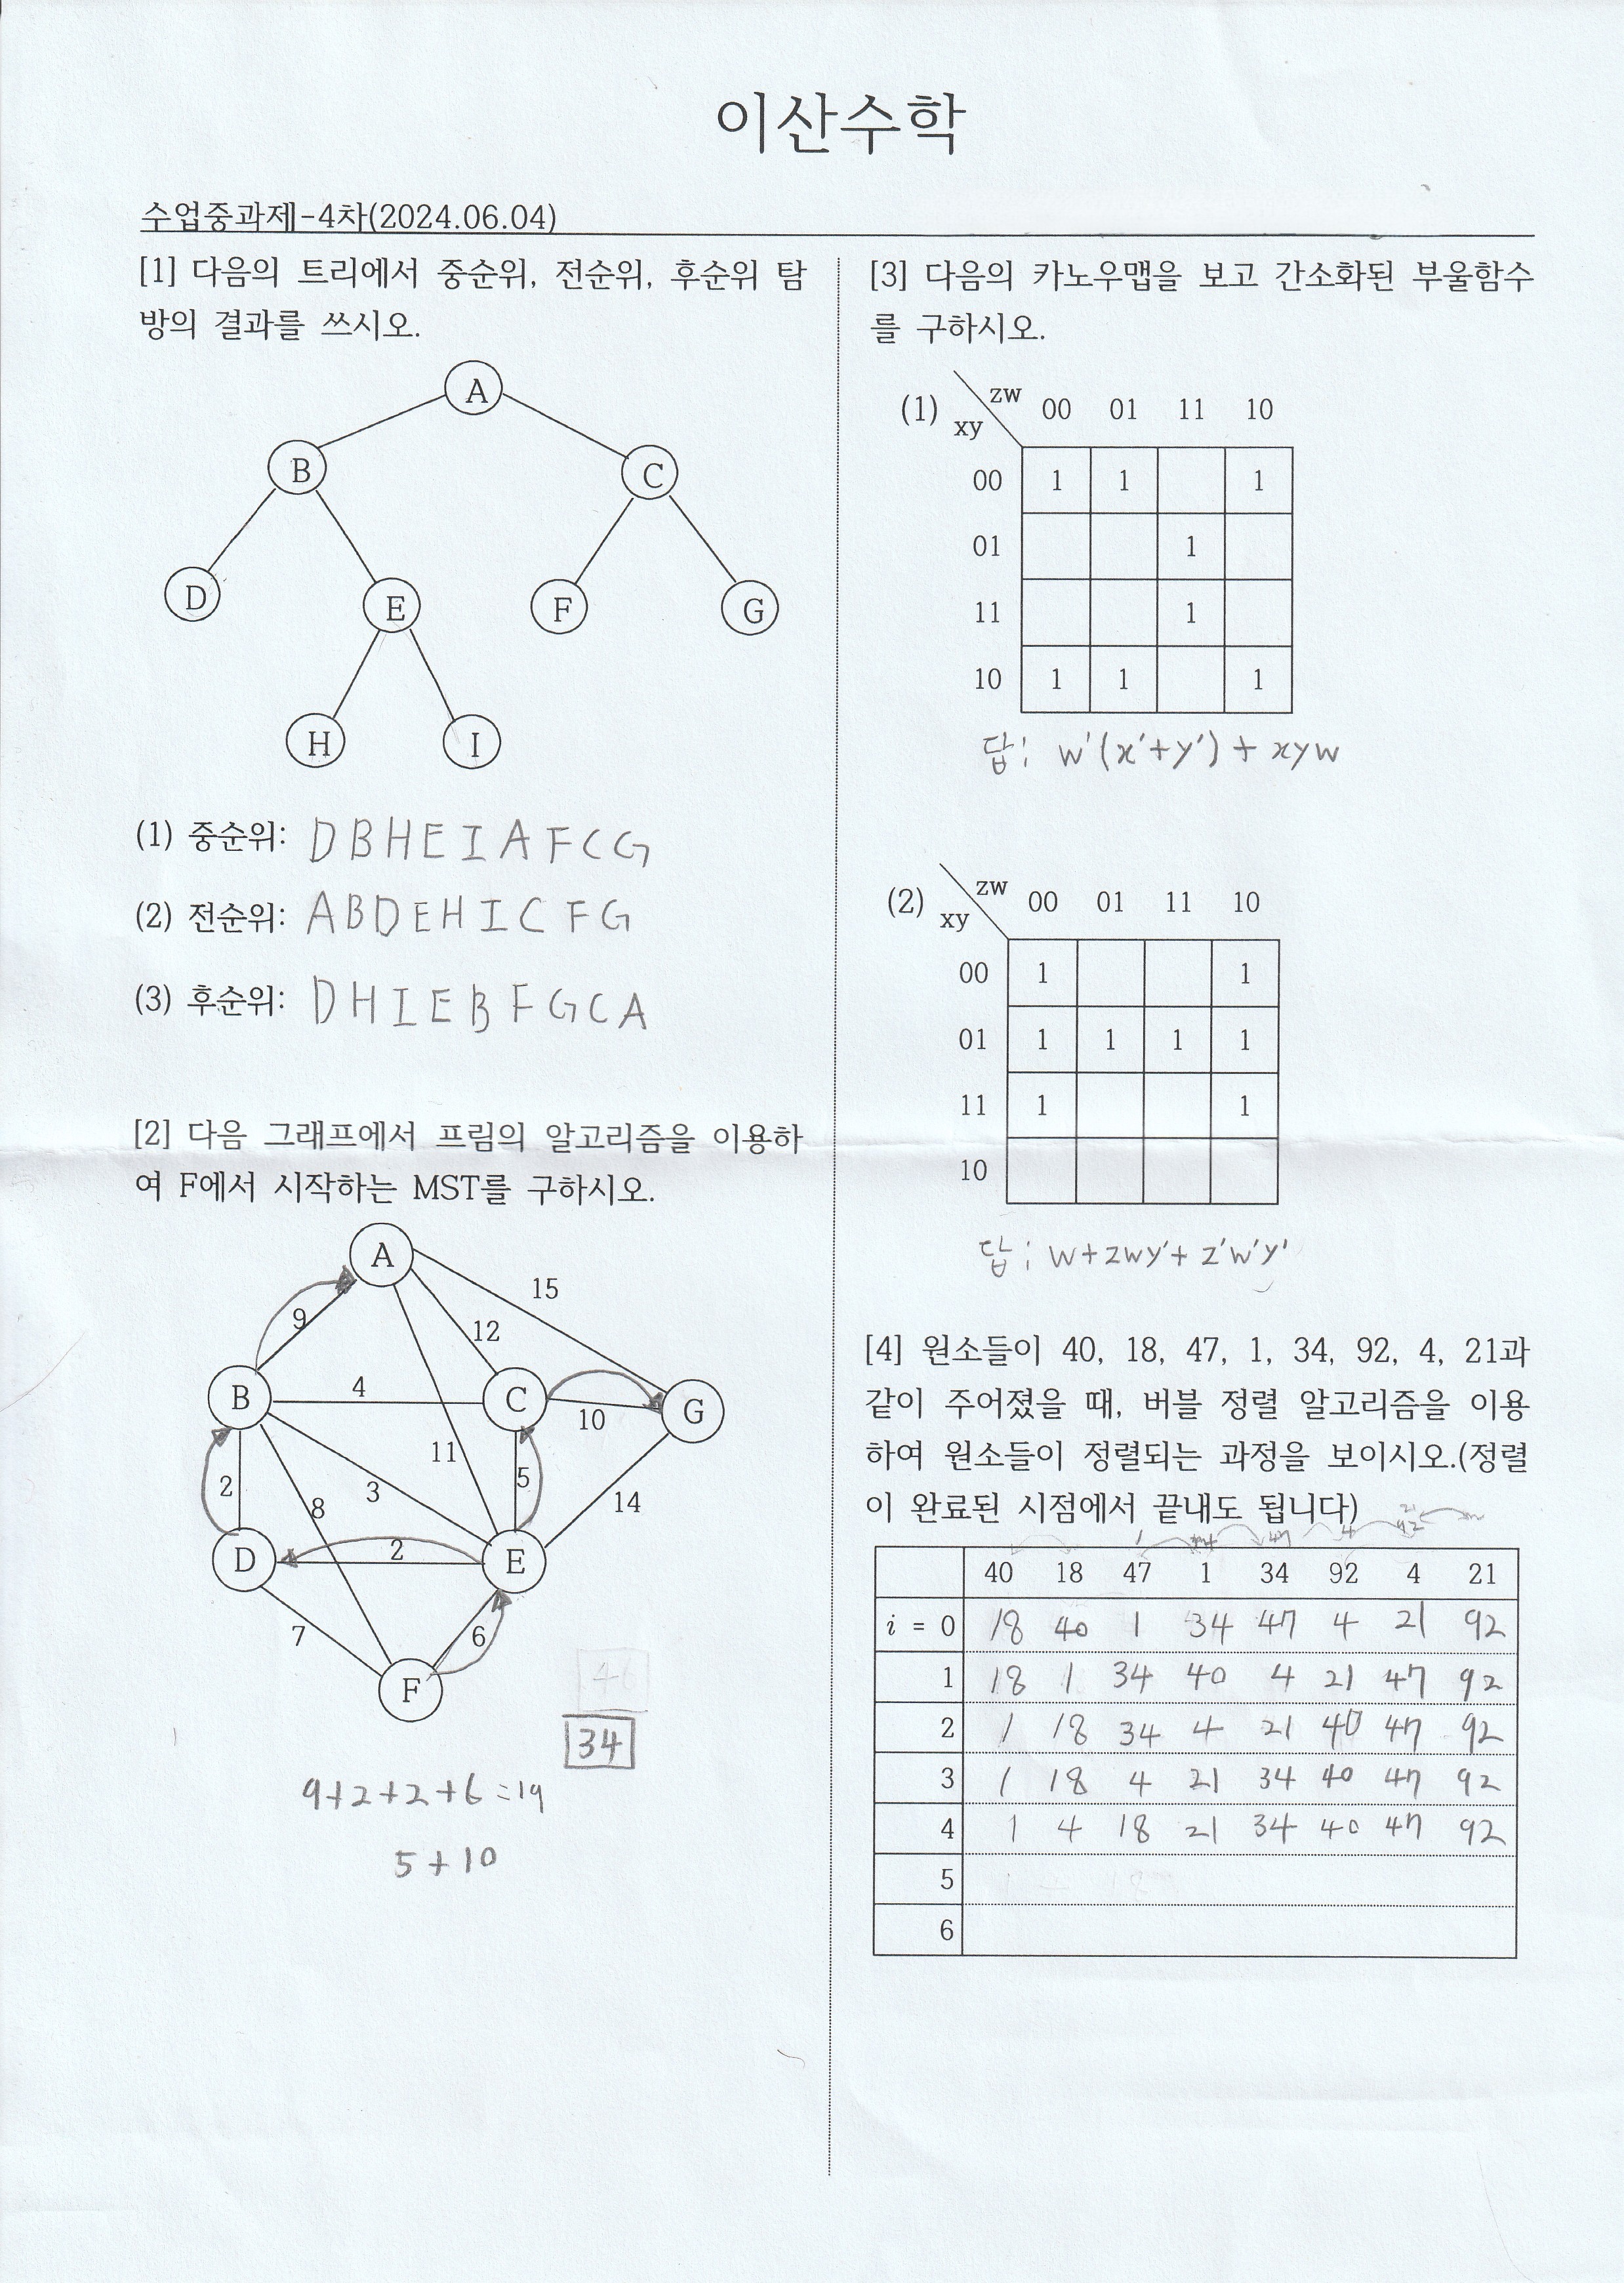 이산수학
수업중과제-4차(2024.06.04)
[1] 다음의 트리에서 중순위, 전순위, 후순위 탐
방의 결과를 쓰시오.
A
B C
D E F G
H I
(1) 중순위: D B H E I A F C G
(2) 전순위: A B D E H I C F G
(3) 후순위: D H I E B F G C A
[2] 다음 그래프에서 프림의 알고리즘을 이용하
여 F에서 시작하는 MST를 구하시오.
A
15
9 12
B 4 C G
10
11
2 8 3 5 14
D 2 E
7 6
F
34
9+2+2+6=19
5+10
[3] 다음의 카노우맵을 보고 간소화된 부울함수
를 구하시오.
(1) xy zw 00 01 11 10
00 1 1 1
01 1
11 1
10 1 1 1
답: w'(x'+y') + xyw
(2) xy zw 00 01 11 10
00 1 1
01 1 1 1 1
11 1 1
10
답: w+zwy'+z'w'y'
[4] 원소들이 40, 18, 47, 1, 34, 92, 4, 21과
같이 주어졌을 때, 버블 정렬 알고리즘을 이용
하여 원소들이 정렬되는 과정을 보이시오.(정렬
이 완료된 시점에서 끝내도 됩니다)
40 18 47 1 34 92 4 21
i = 0 18 40 1 34 47 4 21 92
1 18 1 34 40 4 21 47 92
2 1 18 34 4 21 40 47 92
3 1 18 4 21 34 40 47 92
4 1 4 18 21 34 40 47 92
5
6